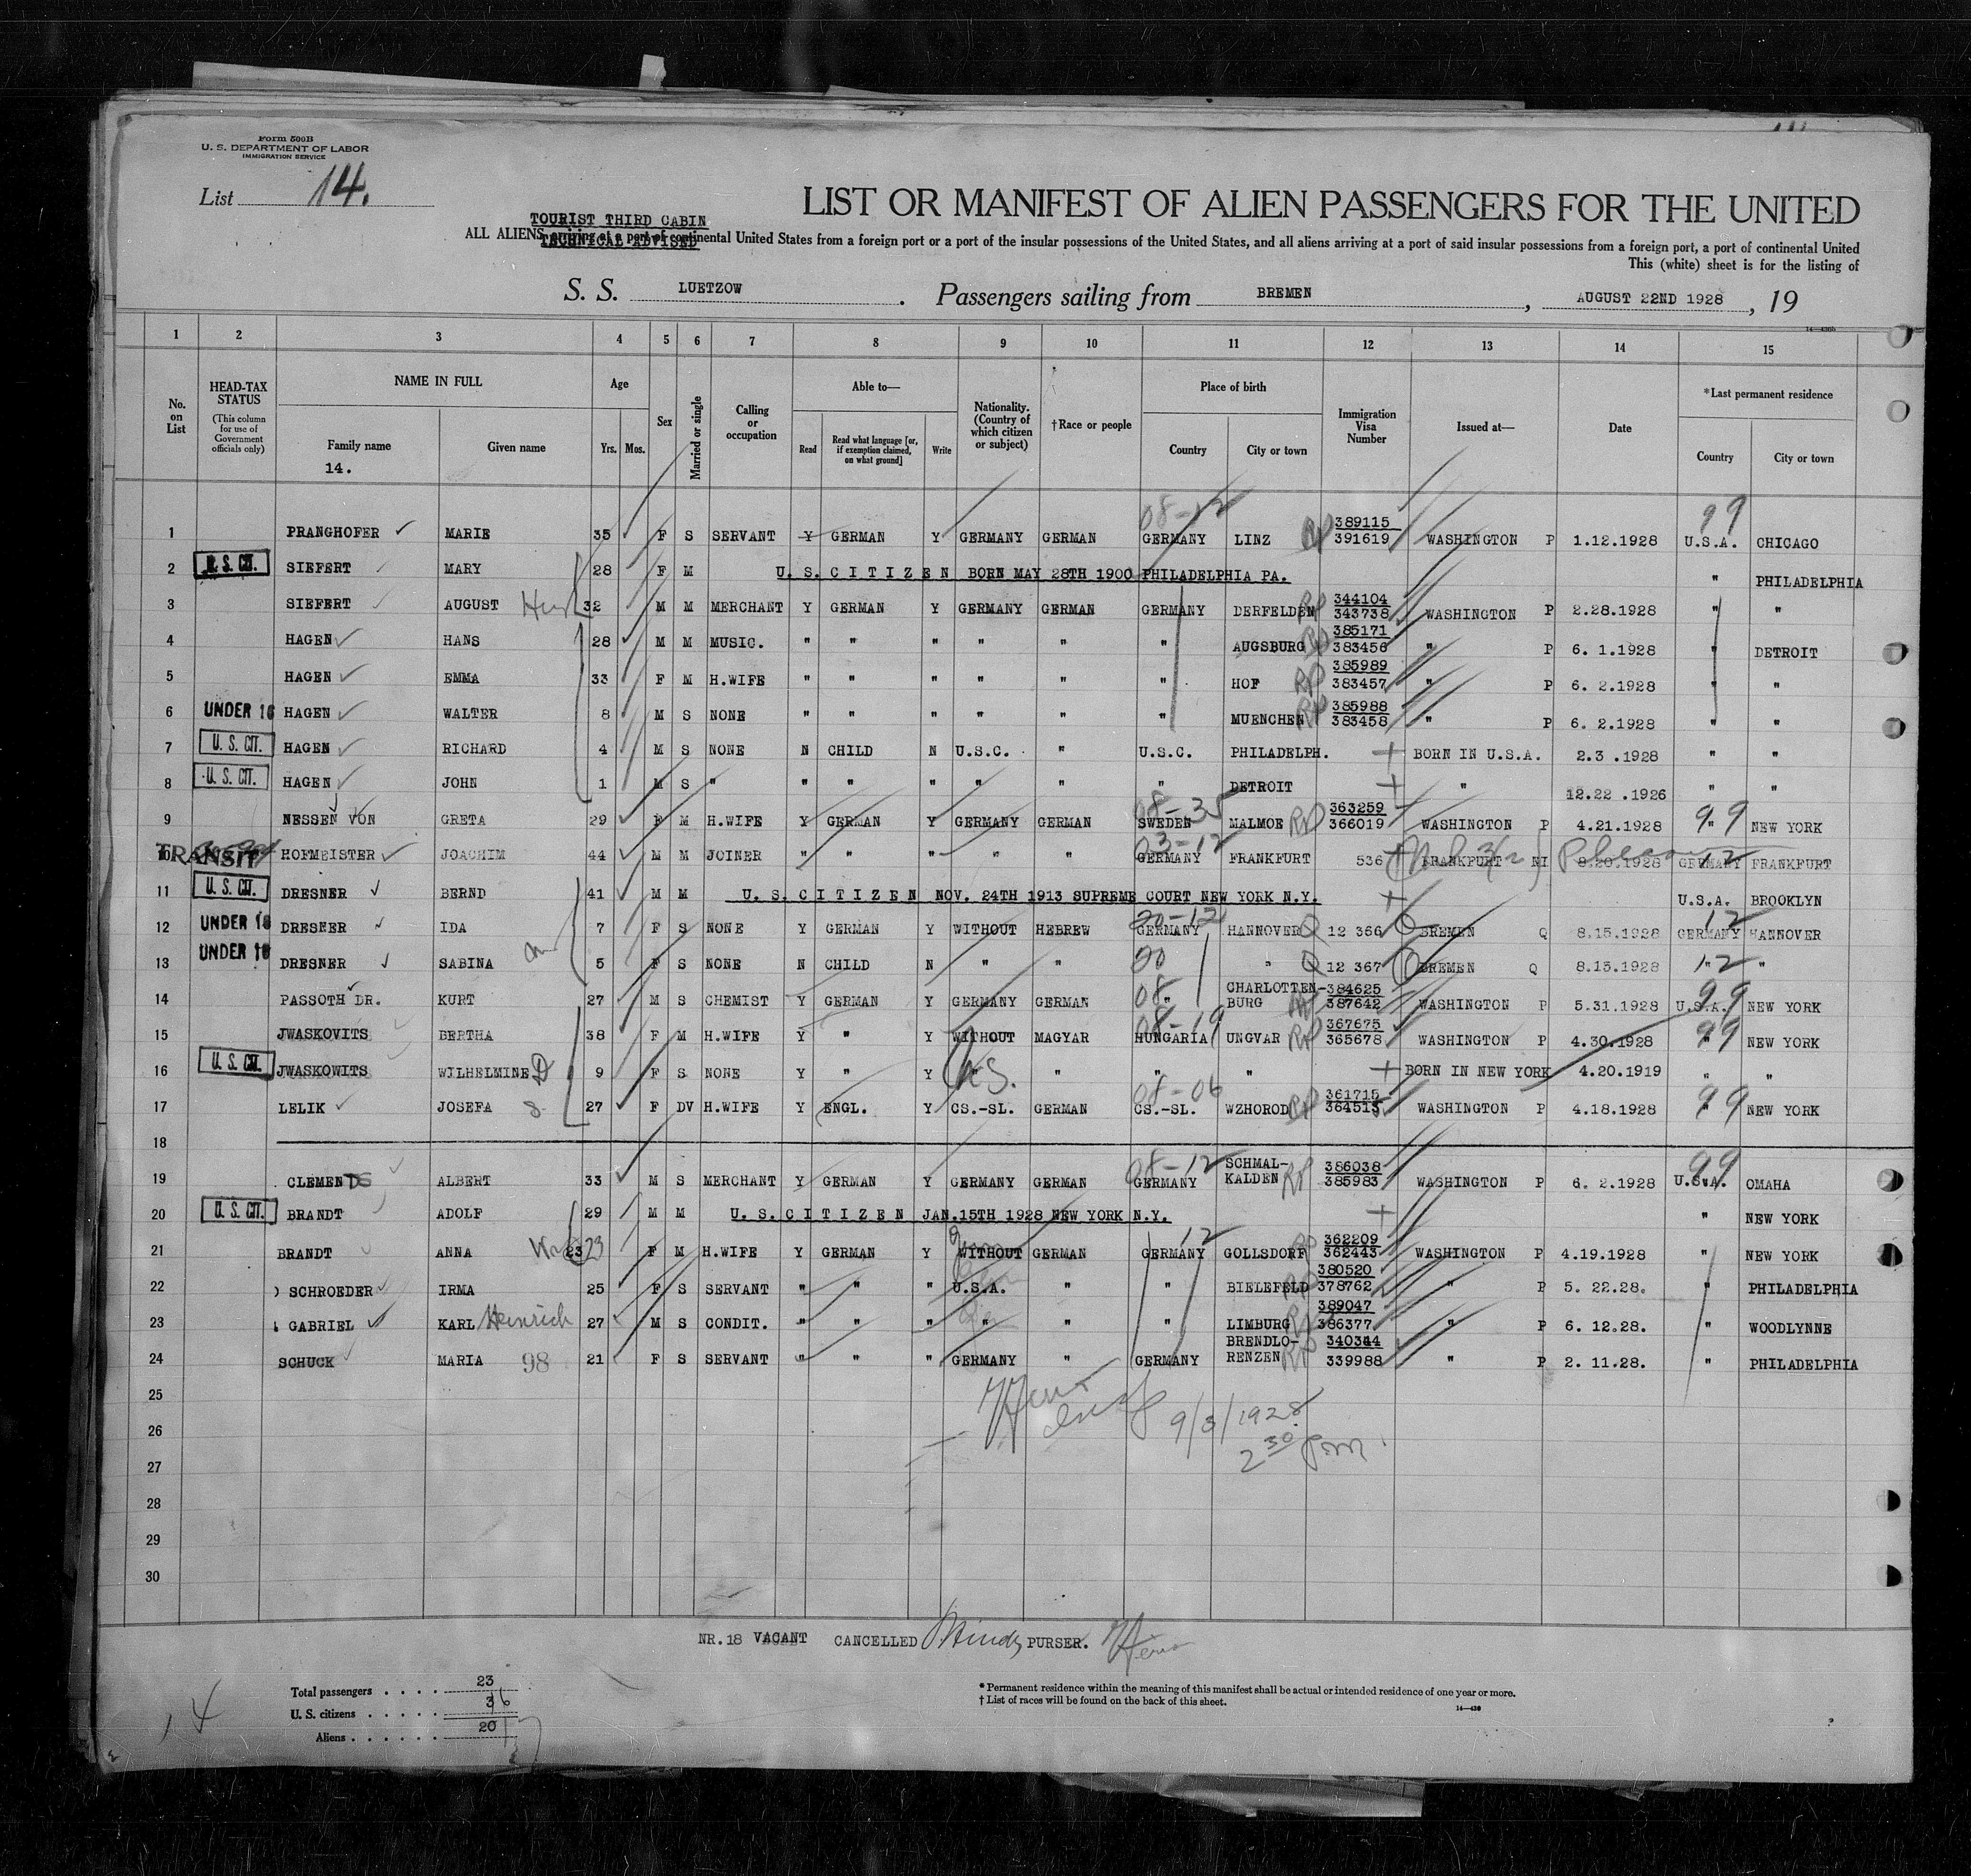 Form 500B
U. S. DEPARTMENT OF LABOR
IMMIGRATION SERVICE
List 14.
LIST OR MANIFEST OF ALIEN PASSENGERS FOR THE UNITED
TOURIST THIRD CABIN
ALL ALIENS arriving at a port of continental United States from a foreign port or a port of the insular possessions of the United States, and all aliens arriving at a port of said insular possessions from a foreign port, a port of continental United
This (white) sheet is for the listing of
S. S. LUETZOW. Passengers sailing from BREMEN, AUGUST 22ND 1928, 19
14—436b
1 2 3 4 5 6 7 8 9 10 11 12 13 14 15
No. on List
HEAD-TAX STATUS (This column for use of Government officials only)
NAME IN FULL Family name Given name
14.
Age Yrs. Mos.
Sex
Married or single
Calling or occupation
Able to— Read Read what language [or, if exemption claimed, on what ground] Write
Nationality. (Country of which citizen or subject)
†Race or people
Place of birth Country City or town
Immigration Visa Number
Issued at—
Date
*Last permanent residence Country City or town
08-12 99
1 PRANGHOFER MARIE 35 F S SERVANT Y GERMAN Y GERMANY GERMAN GERMANY LINZ RP 389115 391619 WASHINGTON P 1.12.1928 U.S.A. CHICAGO
2 U. S. CIT. SIEFERT MARY 28 F M U. S. C I T I Z E N BORN MAY 28TH 1900 PHILADELPHIA PA. " PHILADELPHIA
3 SIEFERT AUGUST 32 M M MERCHANT Y GERMAN Y GERMANY GERMAN GERMANY DERFELDEN RP 344104 343738 WASHINGTON P 2.28.1928 " "
4 HAGEN HANS 28 M M MUSIC. " " " " " " AUGSBURG RP 385171 383456 " P 6. 1.1928 " DETROIT
5 HAGEN EMMA 33 F M H.WIFE " " " " " " HOF RP 385989 383457 " P 6. 2.1928 " "
6 UNDER 16 HAGEN WALTER 8 M S NONE " " " " " " MUENCHEN RP 385988 383458 " P 6. 2.1928 " "
7 U. S. CIT. HAGEN RICHARD 4 M S NONE N CHILD N U.S.C. " U.S.C. PHILADELPH. + BORN IN U.S.A. 2.3 .1928 " "
8 U. S. CIT. HAGEN JOHN 1 M S " " " " " " " DETROIT + " 12.22 .1926 " "
08-35
9 NESSEN VON GRETA 29 F M H.WIFE Y GERMAN Y GERMANY GERMAN SWEDEN MALMOE RP 363259 366019 WASHINGTON P 4.21.1928 99 " NEW YORK
03-12
10 TRANSIT HOFMEISTER JOACHIM 44 M M JOINER " " " " " GERMANY FRANKFURT 536 FRANKFURT NI 8.20.1928 GERMANY 12 FRANKFURT
11 U. S. CIT. DRESNER BERND 41 M M U. S. C I T I Z E N NOV. 24TH 1913 SUPREME COURT NEW YORK N.Y. + U.S.A. BROOKLYN
20-12 12
12 UNDER 16 DRESNER IDA 7 F S NONE Y GERMAN Y WITHOUT HEBREW GERMANY HANNOVER Q 12 366 BREMEN Q 8.15.1928 GERMANY HANNOVER
13 UNDER 16 DRESNER SABINA 5 F S NONE N CHILD N " " 20 " Q 12 367 BREMEN Q 8.15.1928 " 12 "
14 PASSOTH DR. KURT 27 M S CHEMIST Y GERMAN Y GERMANY GERMAN 08 " CHARLOTTEN-BURG RP 384625 387642 WASHINGTON P 5.31.1928 U.S.A. 99 NEW YORK
08-19
15 JWASKOVITS BERTHA 38 F M H.WIFE Y " Y WITHOUT MAGYAR HUNGARIA UNGVAR RP 367675 365678 WASHINGTON P 4.30.1928 99 NEW YORK
16 U. S. CIT. JWASKOWITS WILHELMINE D 9 F S NONE Y " Y U.S. " " " + BORN IN NEW YORK 4.20.1919 " "
08-06
17 LELIK JOSEFA 27 F DV H.WIFE Y ENGL. Y CS.-SL. GERMAN CS.-SL. WZHOROD RP 361715 364515 WASHINGTON P 4.18.1928 99 " NEW YORK
18
08-12 99
19 CLEMENDS ALBERT 33 M S MERCHANT Y GERMAN Y GERMANY GERMAN GERMANY SCHMAL-KALDEN RP 386038 385983 WASHINGTON P 6. 2.1928 U.S.A. OMAHA
20 U. S. CIT. BRANDT ADOLF 29 M M U. S. C I T I Z E N JAN.15TH 1928 NEW YORK N.Y. + " NEW YORK
21 BRANDT ANNA 23 23 F M H.WIFE Y GERMAN Y WITHOUT GERMAN GERMANY 12 GOLLSDORF RP 362209 362443 WASHINGTON P 4.19.1928 " NEW YORK
22 SCHROEDER IRMA 25 F S SERVANT " " " U.S.A. " " BIELEFELD RP 380520 378762 " P 5. 22.28. " PHILADELPHIA
23 GABRIEL KARL Heinrich 27 M S CONDIT. " " " " " " LIMBURG RP 389047 386377 " P 6. 12.28. " WOODLYNNE
24 SCHUCK MARIA 98 21 F S SERVANT " " " GERMANY " GERMANY BRENDLO-RENZEN RP 340344 339988 " P 2. 11.28. " PHILADELPHIA
25
26
9/3/1928
2 30 pm.
27
28
29
30
NR.18 VACANT CANCELLED PURSER.
Total passengers . . . . 23
36
U. S. citizens . . . . .
Aliens . . . . . . 20
14
* Permanent residence within the meaning of this manifest shall be actual or intended residence of one year or more.
† List of races will be found on the back of this sheet.
14—436